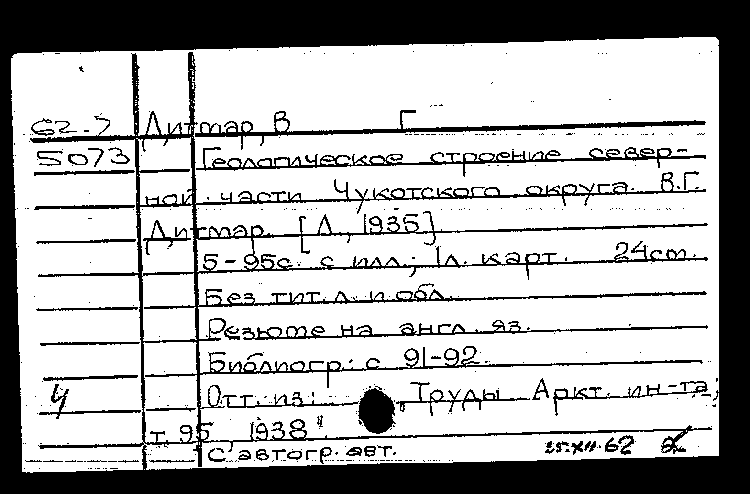 62-7 Дитмар, В Г
5073 Геологическое строение север-
ной части Чукотского округа В.Г.
Дитмар. [Л., 1935]
5-95с. с илл.; 1л. карт. 24cm.
Без тит.л. и обл.
Резюме на англ. яз.
Библиогр: с 91-92.
Ч Отт. из: „Труды Аркт. ин-та;
т. 95, 1938"
С автогр. авт. 25.XII.62